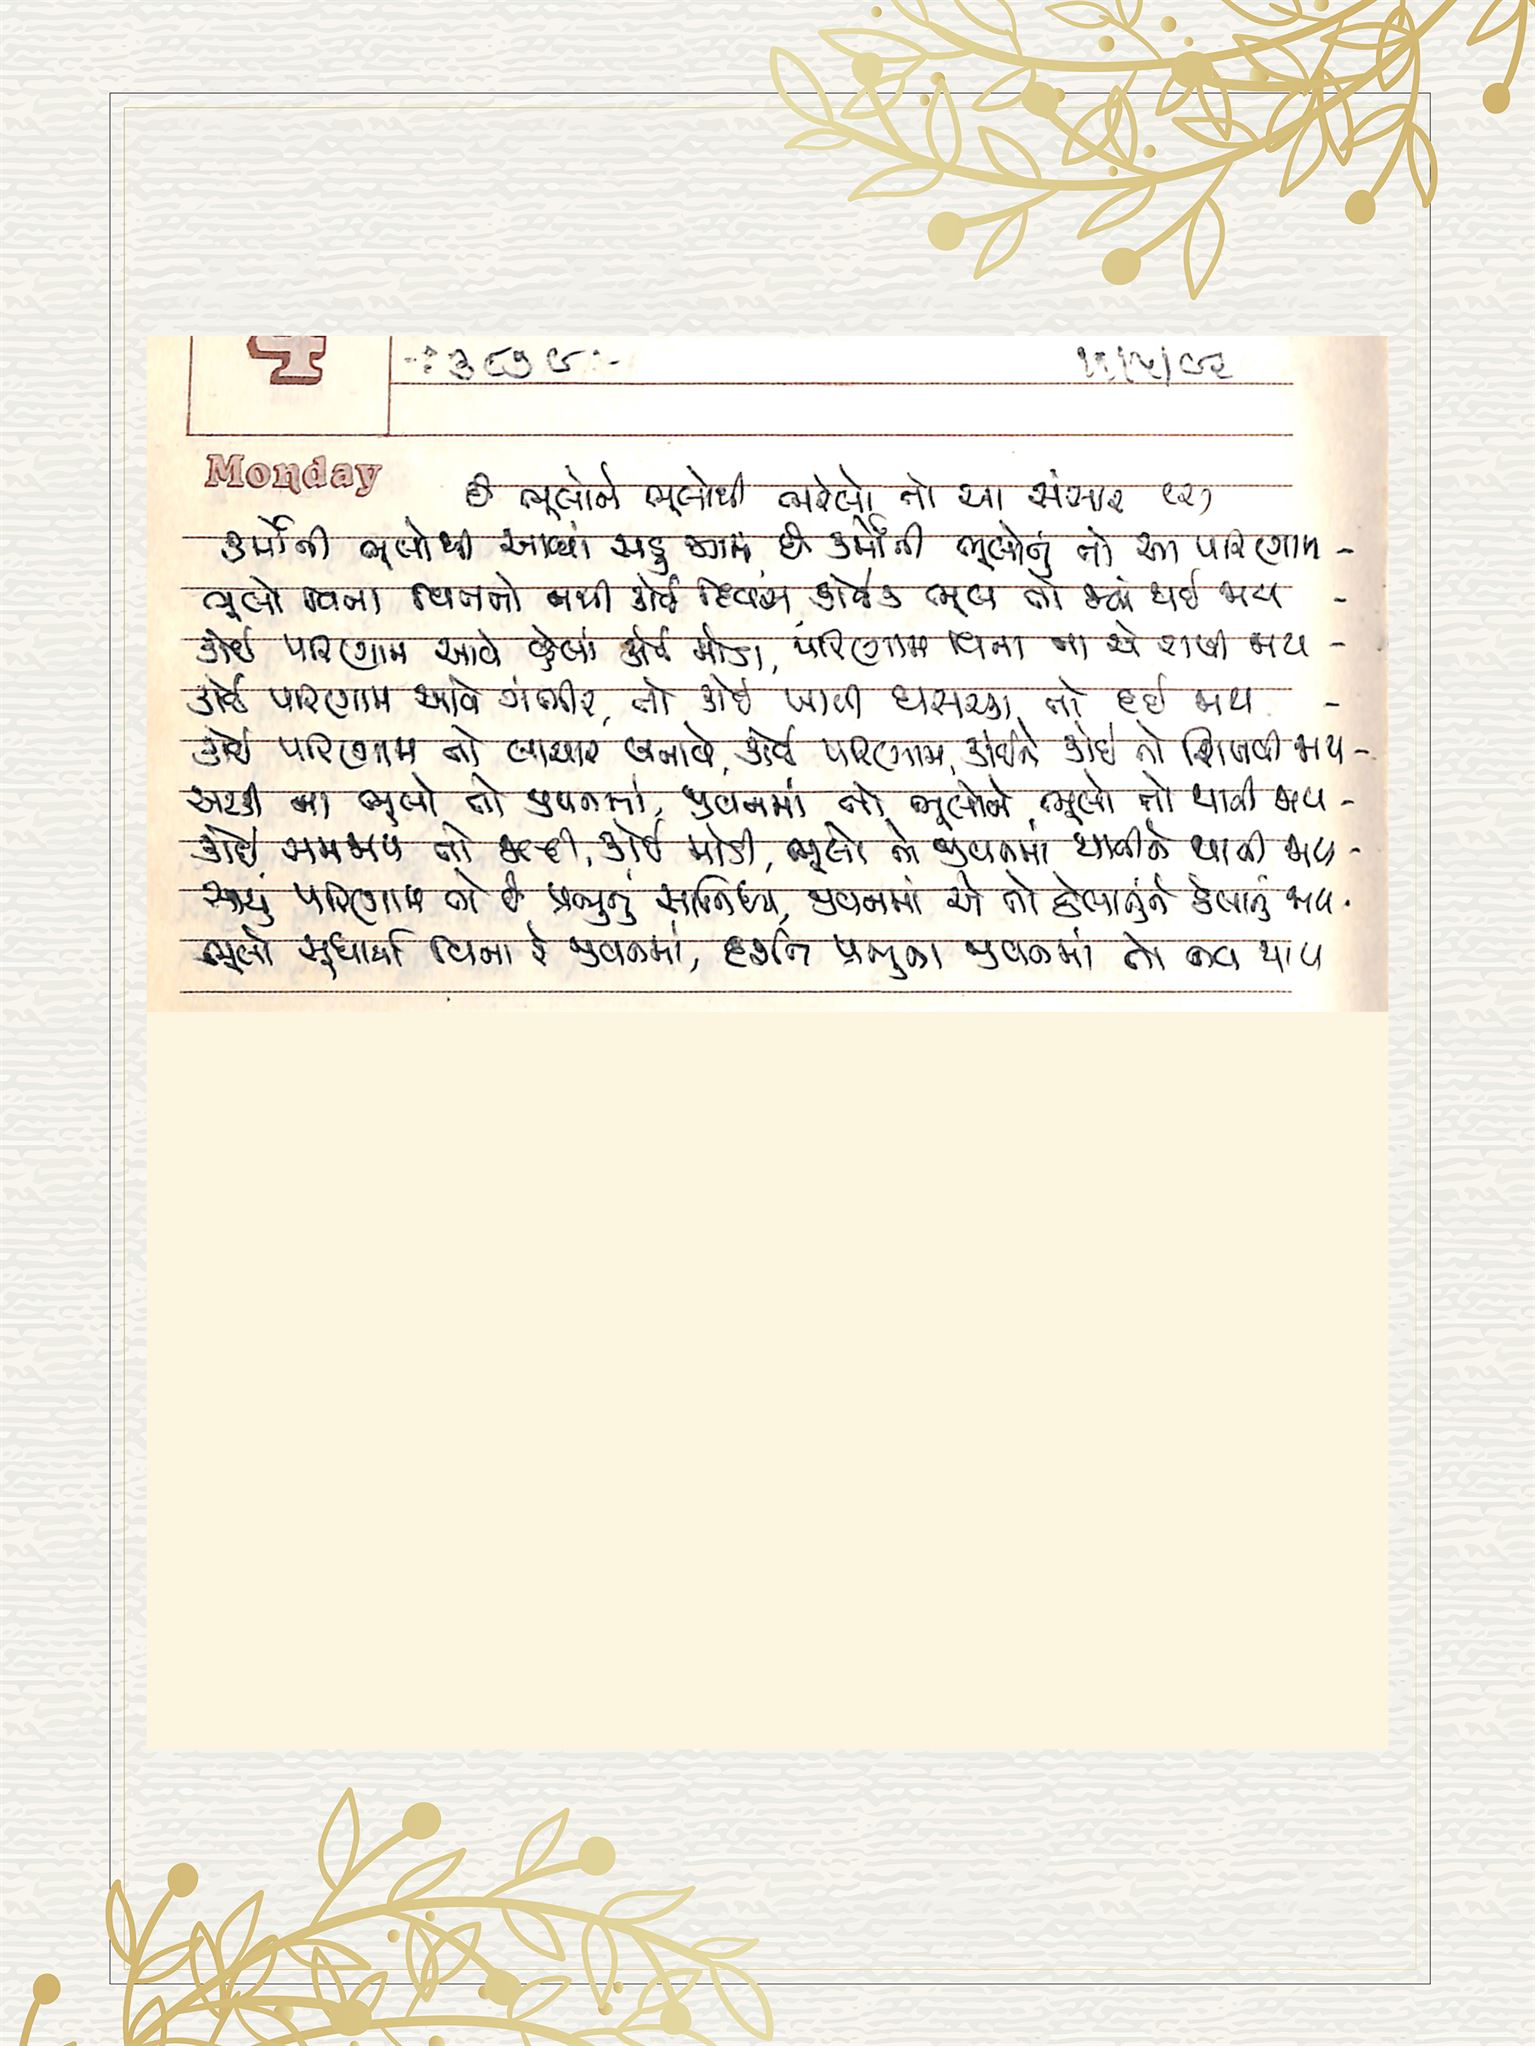 ૪
-: ૩૮૭૯ :-
૫/૫/૯૨
Monday
છે ભૂલોને ભૂલોથી ભરેલો તો આ સંસાર (૨)
કર્મોની ભૂલોથી આવ્યાં સહુ જગમાં, છે કર્મોની ભૂલોનું તો આ પરિણામ -
ભૂલો વિના વિતતો નથી કોઈ દિવસ, કોઈક ભૂલ તો જ્યાં થઈ જાય -
કોઈ પરિણામ આવે વહેલાં કોઈ મોડા, પરિણામ વિના ના એ રાખી જાય -
કોઈ પરિણામ આવે ગંભીર, તો કોઈ ખાલી ઘસરકા તો દઈ જાય -
કોઈ પરિણામ તો લાચાર બનાવે, કોઈ પરિણામ, કોઈને કોઈ તો શિખવી જાય -
અટકી ના ભૂલો તો જીવનમાં, જીવનમાં તો ભૂલોને ભૂલો તો થાતી જાય -
કોઈ સમજાય તો જલ્દી, કોઈ મોડી, ભૂલો તો જીવનમાં થાતીને થાતી જાય -
સાચું પરિણામ તો છે પ્રભુનું સાંનિધ્ય, જીવનમાં એ તો ઠેલાતુંને ઠેલાતું જાય -
ભૂલો સુધાર્યા વિના રે જીવનમાં, દર્શન પ્રભુના જીવનમાં તો ના થાય